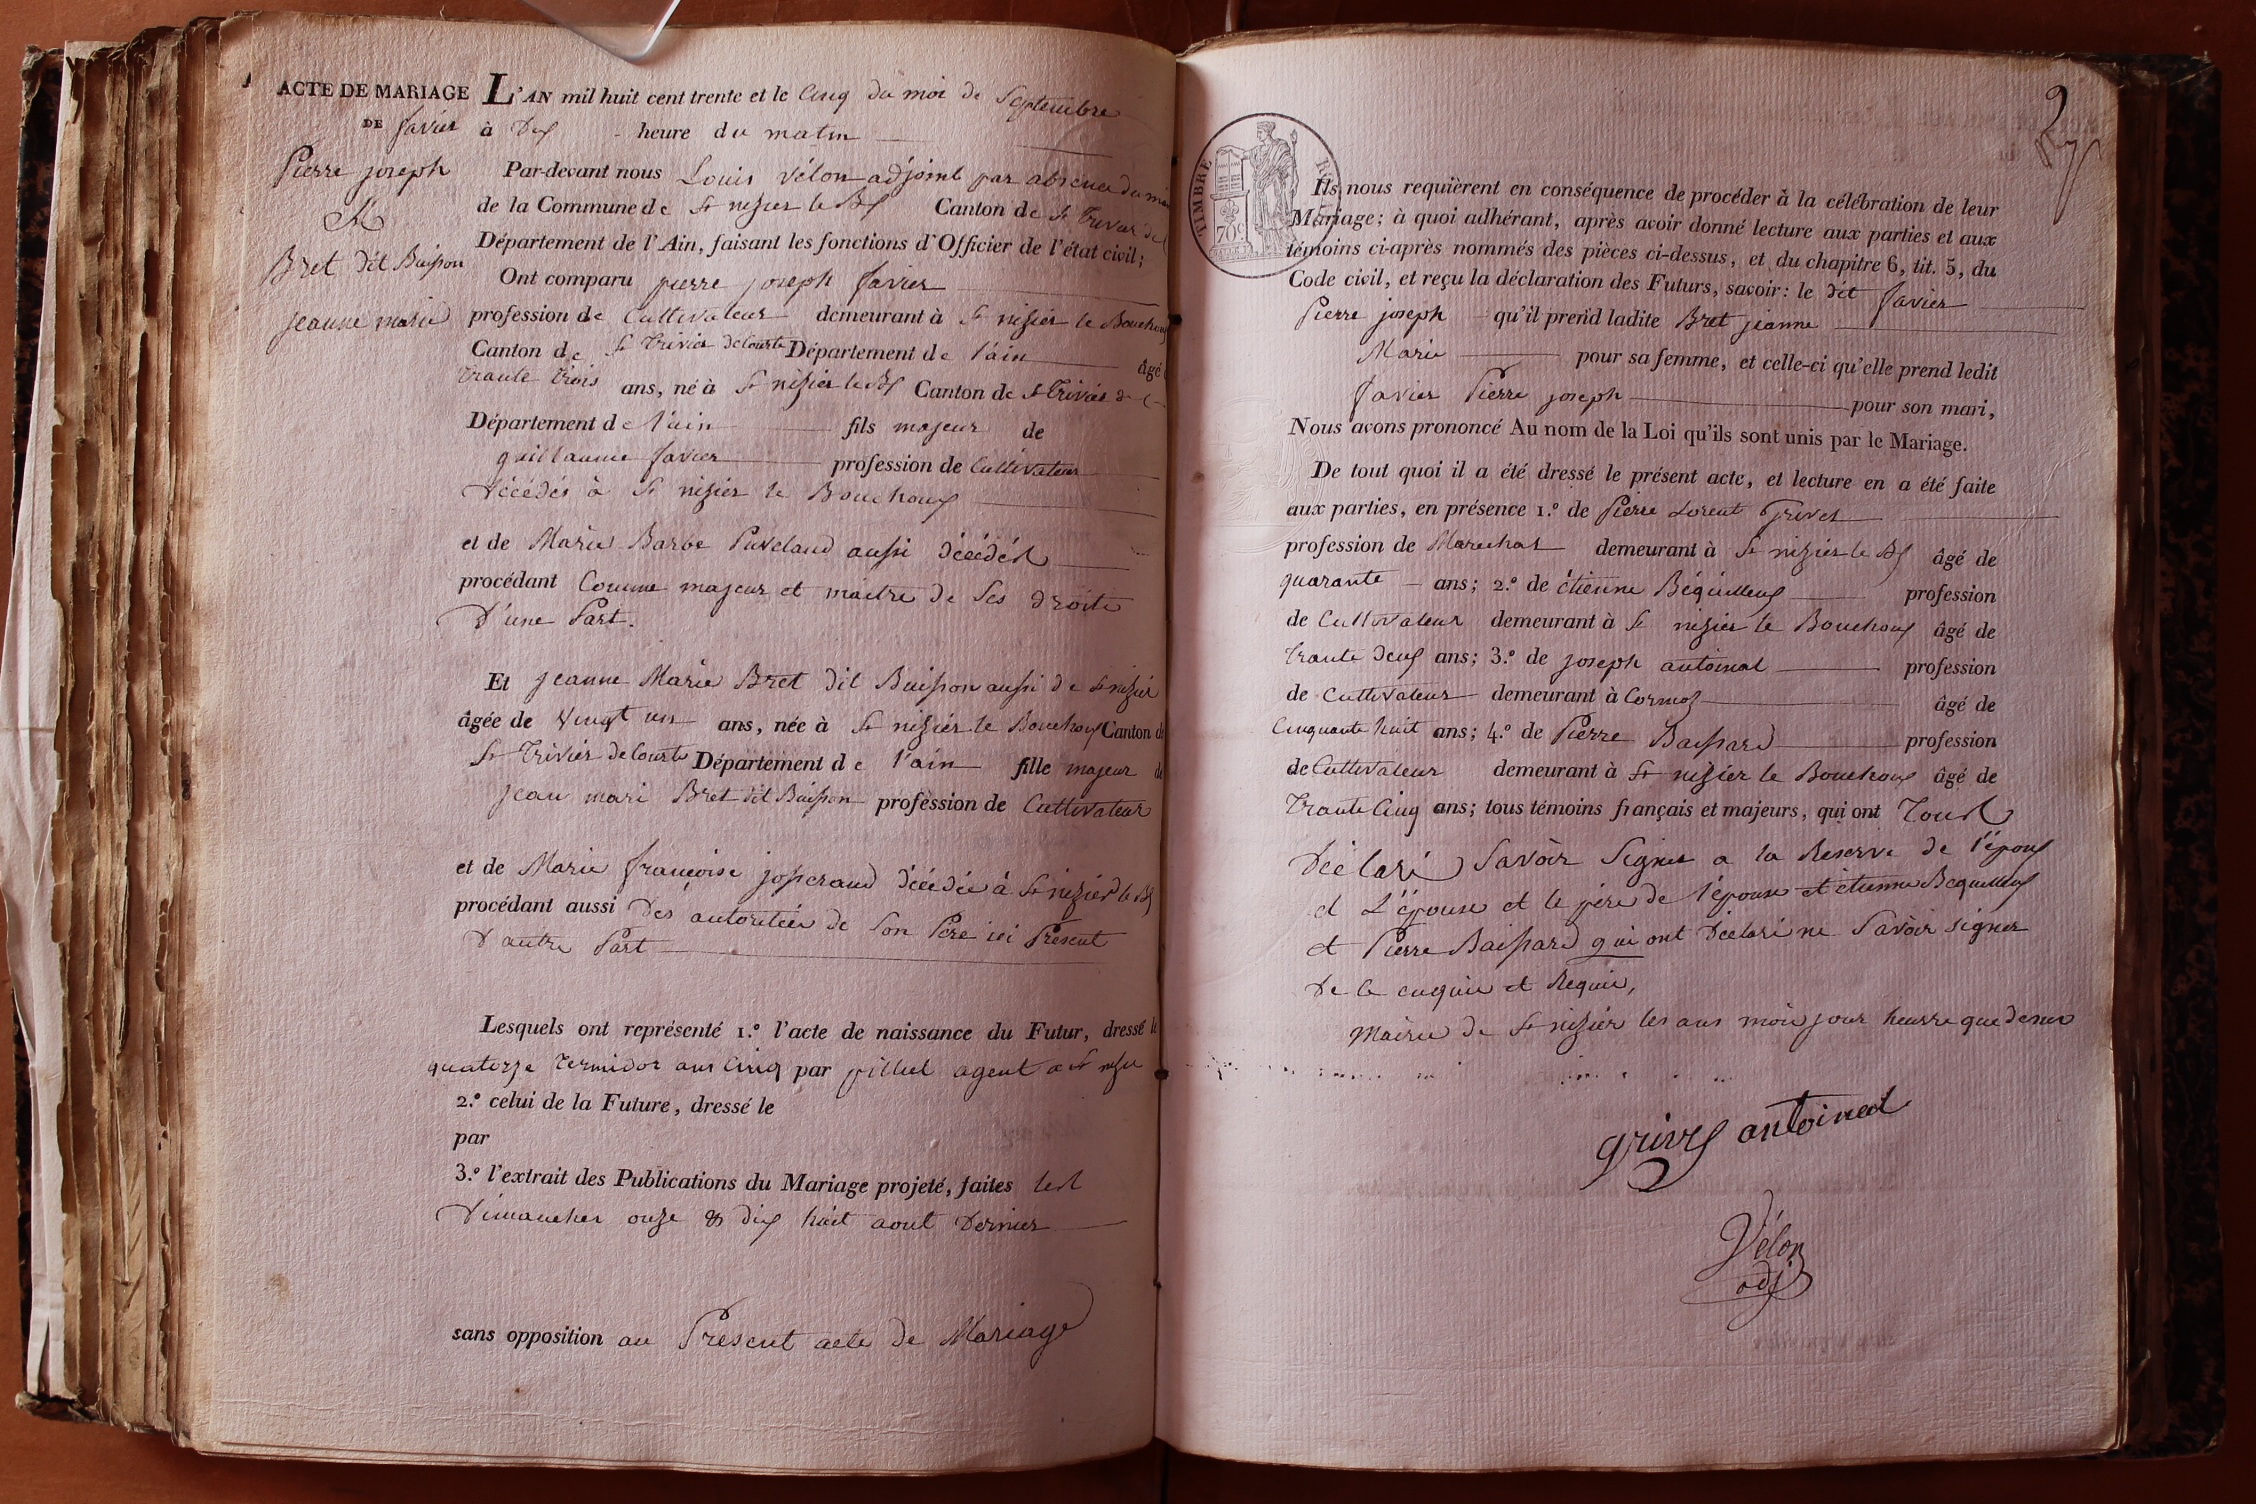 ACTE DE MARIAGE
DE favier
Pierre joseph
Et
Bret dit Buisson
jeanne marie
L'AN mil huit cent trente et le Cinq du moi de Septembre
à Dix heure du matin
Par-devant nous Louis vélon adjoint par absence du
de la Commune de St nizier le Bx Canton de St Trivier de
Département de l'Ain, faisant les fonctions d'Officier de l'état civil;
Ont comparu pierre joseph favier
profession de Cultivateur demeurant à St nizier le Bouchoux
Canton de St Trivier de Courte Département de l'ain âgé
trante trois ans, né à St nizier le Bx Canton de St Trivier de C
Département de l'ain fils majeur de
guillaume favier profession de Cultivateur
Décédés à St nizier le Bouchoux
et de Marie Barbe Puveland aussi décédés
procédant Comme majeur et maitre de Ses droits
D'une Part.
Et jeanne Marie Bret dit Buisson aussi de St nizier
âgée de vingt un ans, née à St nizier le Bouchoux Canton de
St Trivier de Courte Département de l'ain fille majeur de
jean mari Bret dit Buisson profession de Cultivateur
et de Marie françoise josserand décédée à St nizier le Bx
procédant aussi Des autoritées de Son Pere ici Présent
D'autre Part
Lesquels ont représenté 1.º l'acte de naissance du Futur, dressé le
quatorze termidor ans Cinq par pilliet agent a St
2.º celui de la Future, dressé le
par
3.º l'extrait des Publications du Mariage projeté, faites les
Dimancher onze & dix huit aout Dernier
sans opposition au Present acte de Mariage
TIMBRE
70c
Ils nous requièrent en conséquence de procéder à la célébration de leur
Mariage; à quoi adhérant, après avoir donné lecture aux parties et aux
témoins ci-après nommés des pièces ci-dessus, et du chapitre 6, tit. 5, du
Code civil, et reçu la déclaration des Futurs, savoir: le dit favier
Pierre joseph qu'il prend ladite Bret jeanne
Marie pour sa femme, et celle-ci qu'elle prend ledit
favier Pierre joseph pour son mari,
Nous avons prononcé Au nom de la Loi qu'ils sont unis par le Mariage.
De tout quoi il a été dressé le présent acte, et lecture en a été faite
aux parties, en présence 1.º de Pierre Lorent Grivet
profession de Marechal demeurant à St nizier le Bx âgé de
quarante ans; 2.º de étienne Béquilleux profession
de Cultivateur demeurant à St nizier le Bouchoux âgé de
trante deux ans; 3.º de joseph antoinat profession
de Cultivateur demeurant à Cormoz âgé de
Cinquante huit ans; 4.º de Pierre Baissard profession
de Cultivateur demeurant à St nizier le Bouchoux âgé de
Trante Cinq ans; tous témoins français et majeurs, qui ont Tous
Déclaré Savoir Signer a la Reserve de l'époux
et L'épouse et le père de l'épouse et étienne Bequilleux
et Pierre Baissard qui ont Déclaré ne Savoir signer
De ce enquie et Requie,
Mairie de St nizier les ans mois jour heurre que desus
grivet antoinat
Vélon
adj